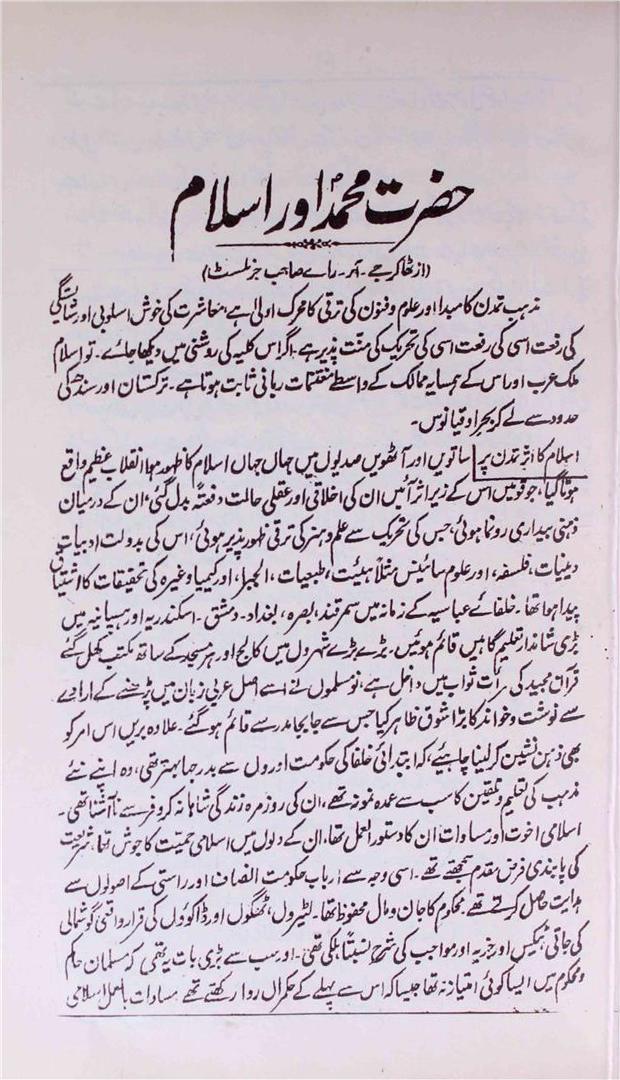 حضرت محمدؐ اور اسلام
(از ٹھاکر جے۔ آر۔ رائے صاحب جرنلسٹ)
مذہب تمدن کا مبدا اور علوم و فنون کی ترقی کا محرک اولیٰ ہے، معاشرت کی خوش اسلوبی اور شایستگی
کی رفعت اسی کی رفعت اسی کی تحریک کی منت پذیر ہے۔ اگر اس کلیہ کی روشنی میں دیکھا جائے۔ تو اسلام
ملک عرب اور اس کے ہمسایہ ممالک کے واسطے ربانی ثابت ہوتا ہے۔ ترکستان اور سندھ کی
حدود سے لے کر بحر اوقیانوس۔
اسلام کا اثر تمدن پر ساتویں اور آٹھویں صدیوں میں جہاں جہاں اسلام کا ظہور ہوا انقلاب عظیم واقع
ہوتا گیا، جو قومیں اس کے زیر اثر آئیں ان کی اخلاقی اور عقلی حالت دفعتہً بدل گئی، ان کے درمیان
ذہنی بیداری رونما ہوئی، جس کی تحریک سے علم و ہنر کی ترقی ظہور پذیر ہوئی، اس کی بدولت ادبیات
دینیات، فلسفہ، اور علوم سائینس مثلاً ہیئت، طبعیات، الجبرا، اور کیمیا وغیرہ کی تحقیقات کا اشتیاق
پیدا ہوا تھا۔ خلفائے عباسیہ کے زمانہ میں سمرقند، بصرہ، بغداد۔ دمشق۔ اسکندریہ اور ہسپانیہ میں
بڑی شاندار تعلیم گاہیں قائم ہوئیں۔ بڑے بڑے شہروں میں کالج اور ہر مسجد کے ساتھ مکتب کھل گئے
قرآن مجید کی قرأت ثواب میں داخل ہے، نومسلموں نے اسے اصل عربی زبان میں پڑھنے کے ارادے
سے نوشت و خواند کا بڑا شوق ظاہر کیا جس سے جا بجا مدرسے قائم ہو گئے۔ علاوہ بریں اس امر کو
بھی ذہن نشین کر لینا چاہیے، کہ ابتدائی خلفا کی حکومت اوروں سے بدرجہا بہتر تھی، وہ اپنے نئے
مذہب کی تعلیم و تلقین کا سب سے عمدہ نمونہ تھے، ان کی روزمرہ زندگی شاہانہ کروفر سے نا آشنا تھی۔
اسلامی اخوت اور مساوات ان کا دستور العمل تھا، ان کے دلوں میں اسلامی حمیت کا جوش تھا، شریعت
کی پابندی فرض مقدم سمجھتے تھے۔ اسی وجہ سے ارباب حکومت انصاف اور راستی کے اصولوں سے
ہدایت حاصل کرتے تھے۔ محکوم کا جان و مال محفوظ تھا۔ لٹیروں، ٹھگوں اور ڈاکوؤں کی قرار واقعی گوشمالی
کی جاتی، ٹیکس اور جزیہ اور مواجب کی شرح نسبتاً ہلکی تھی۔ اور سب سے بڑی بات یہ تھی کہ مسلمان حاکم
و محکوم میں ایسا کوئی امتیاز نہ تھا جیسا کہ اس سے پہلے کے حکمراں روا رکھتے تھے مساوات باہمی اسلامی